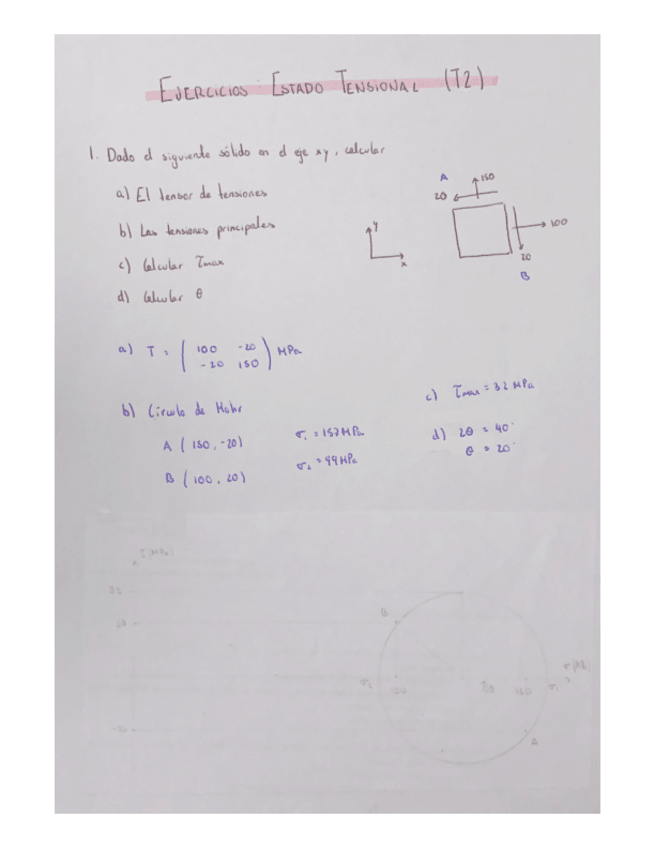 EJERCICIOS ESTADO TENSIONAL (T2)
1. Dado el siguiente sólido en el eje xy, calcular
a) El tensor de tensiones
b) Las tensiones principales
c) Calcular τmax
d) Calcular θ
A
150
20
100
20
B
y
x
a) T = ( 100 -20
-20 150 ) MPa
b) Círculo de Mohr
A ( 150, -20)
B ( 100, 20)
σ₁ = 157 MPa
σ₂ = 99 MPa
c) τmax = 32 MPa
d) 2θ = 40°
θ = 20°
τ (MPa)
32
20
-20
B
σ₂
100
2θ
150
σ₁
A